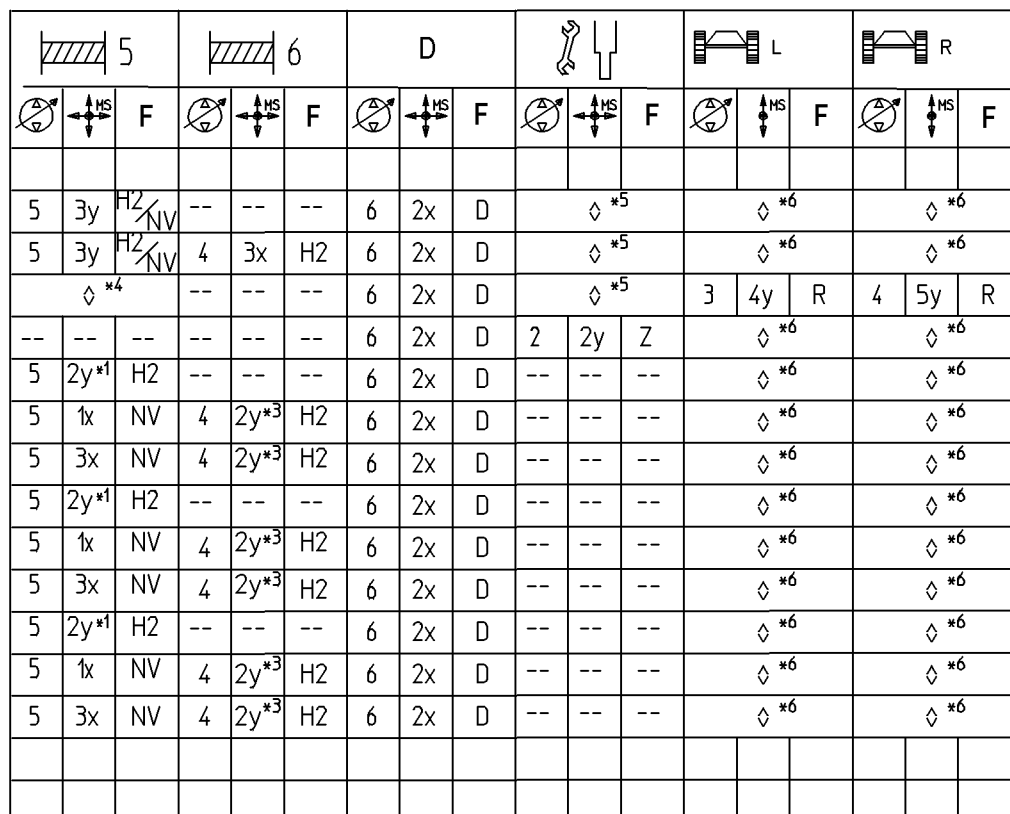 5 6 D L R
MS F MS F MS F MS F MS F MS F
5 3y H2/NV -- -- -- 6 2x D ◊ *5 ◊ *6 ◊ *6
5 3y H2/NV 4 3x H2 6 2x D ◊ *5 ◊ *6 ◊ *6
◊ *4 -- -- -- 6 2x D ◊ *5 3 4y R 4 5y R
-- -- -- -- -- -- 6 2x D 2 2y Z ◊ *6 ◊ *6
5 2y*1 H2 -- -- -- 6 2x D -- -- -- ◊ *6 ◊ *6
5 1x NV 4 2y*3 H2 6 2x D -- -- -- ◊ *6 ◊ *6
5 3x NV 4 2y*3 H2 6 2x D -- -- -- ◊ *6 ◊ *6
5 2y*1 H2 -- -- -- 6 2x D -- -- -- ◊ *6 ◊ *6
5 1x NV 4 2y*3 H2 6 2x D -- -- -- ◊ *6 ◊ *6
5 3x NV 4 2y*3 H2 6 2x D -- -- -- ◊ *6 ◊ *6
5 2y*1 H2 -- -- -- 6 2x D -- -- -- ◊ *6 ◊ *6
5 1x NV 4 2y*3 H2 6 2x D -- -- -- ◊ *6 ◊ *6
5 3x NV 4 2y*3 H2 6 2x D -- -- -- ◊ *6 ◊ *6